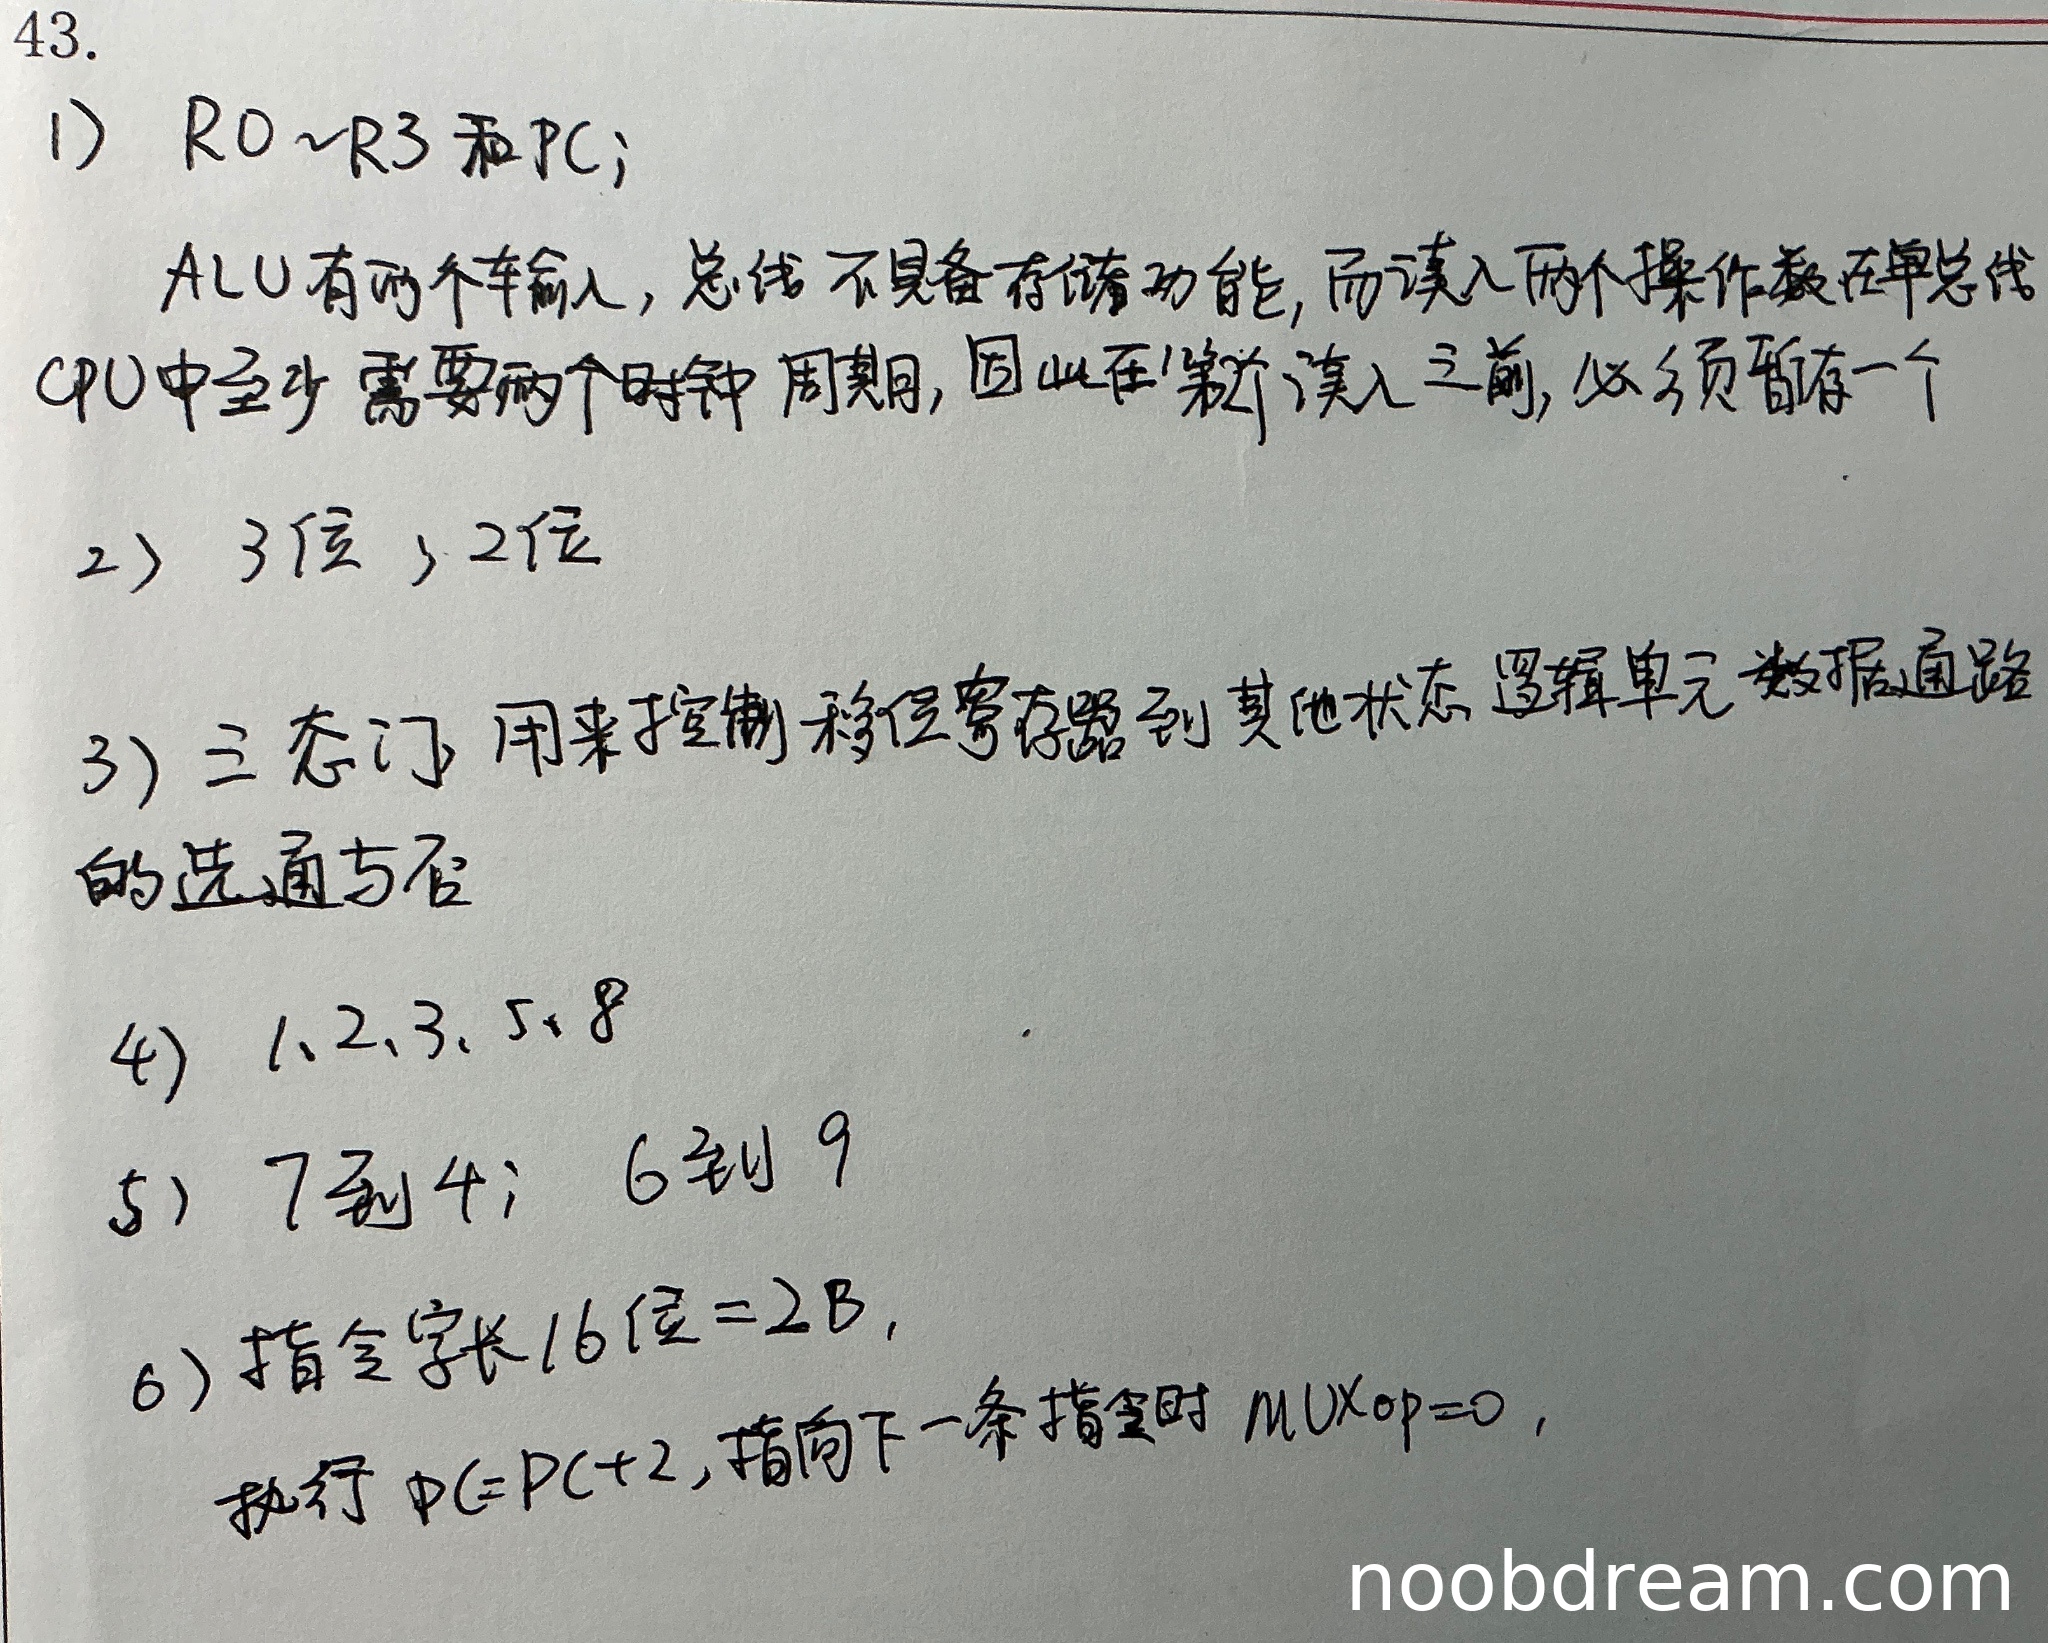 43.
1) R0~R3和PC;
ALU有两个输入,总线不具备存储功能,而读入两个操作数在单总线
CPU中至少需要两个时钟周期,因此在第2个读入之前,必须暂存一个
2) 3位,2位
3)三态门,用来控制移位寄存器到其他状态逻辑单元数据通路
的选通与否
4) 1、2、3、5、8
5) 7到4; 6到9
6)指令字长16位=2B,
执行PC=PC+2,指向下一条指令时MUXop=0,
noobdream.com